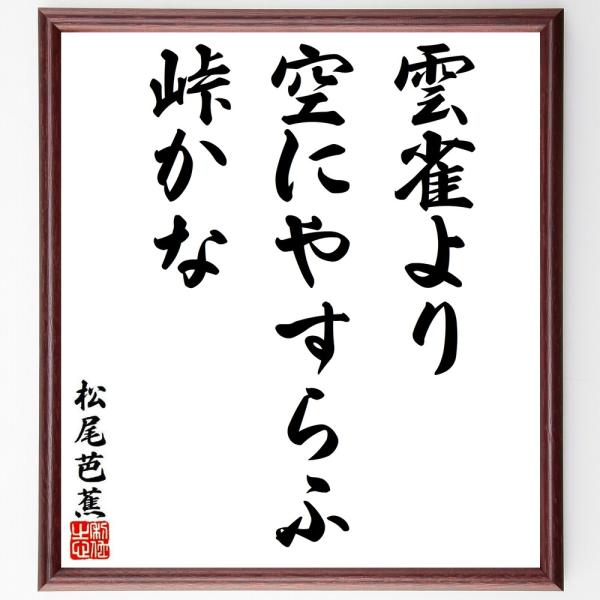 雲雀より
空にやすらふ
峠かな
松尾芭蕉